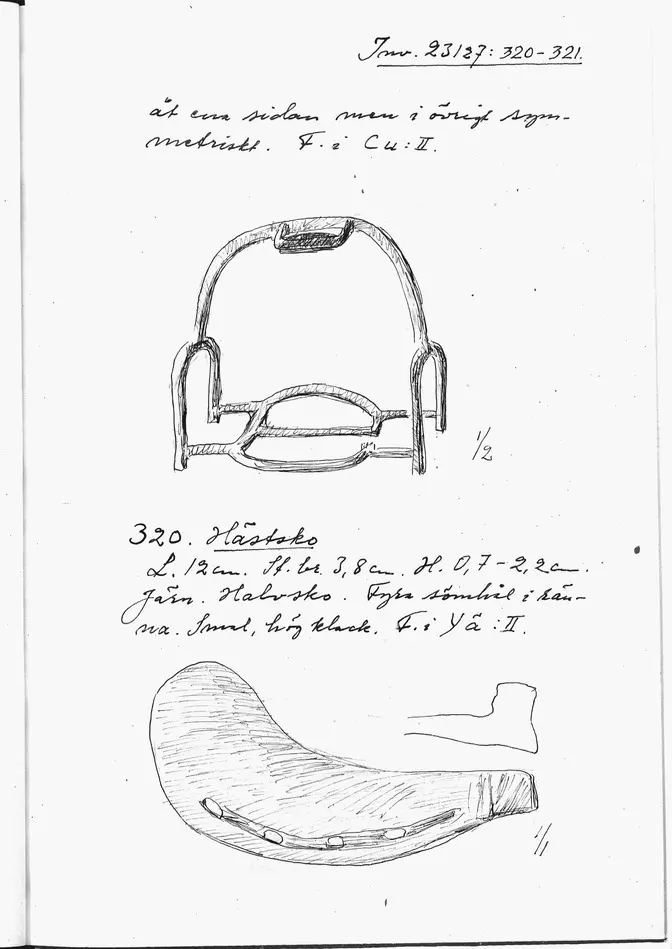 Inv. 23127: 320-321.
åt ena sidan men i övrigt sym-
metriskt. F. i Cu: II.
1/2
320. Hästsko
L. 12 cm. St. br. 3,8 cm. H. 0,7-2,2 cm.
Järn. Halvsko. Fyra sömhål i rän-
na. Smal, hög klack. F. i Yä: II.
1/1